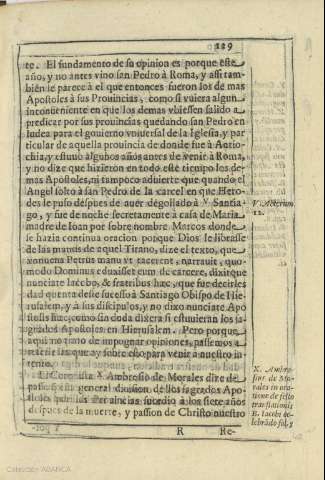 119
te. El fundamento de su opinion es porque este
año, y no antes vino san Pedro à Roma, y assi tam-
bien le parece à el que entonces fueron los de mas
Apostoles à sus Prouincias, como si vuiera algun
inconueniente en que los demas vbiessen salido a
predicar por sus prouincias quedando san Pedro en
Iudea para el gouierno vniuersal de la Iglesia, y par
ticular de aquella prouincia de donde fue à Antio-
chia, y estuuo algunos años antes de venir à Roma,
y no dize que hizieron en todo este tiempo los de-
mas Apostoles, ni tampoco aduierte que quando el
Angel solto à san Pedro de la carcel en que Hero-
des le puso despues de auer degollado à V Santia-
go, y fue de noche secretamente à casa de Maria
madre de Ioan por sobre nombre Marcos donde
se hazia continua oracion porque Dios le librasse
de las manos de aquel Tirano, dize el texto, que
annuens Petrus manu vt tacerent, narrauit, quo-
modo Dominus eduxisset eum de carcere, dixitque
nunciate Iacobo, & fratribus hæc, que fue decirles
dad quenta deste sucesso à Santiago Obispo de Hie-
rusalem, y à sus discipulos, y no dixo nunciate Apo
stolis hæc, como sin doda dixera si estuuieran los sa-
grados Apostoles en Hierusalem. Pero porque
aqui no trato de impugnar opiniones, passemos a
referir las que ay sobre esto para venir a nuestro in
tento.
El Coronista X Ambrosio de Morales dize
general diuision de los sagrados Apo-
stoles por las Prouincias sucedio à los siete años
despues de la muerte, y passion de Christo nuestro
R He-
V. Actorum
12.
X. Ambro-
sius de Mo-
rales in ora
tione de festo
translationis
B. Iacobi ce-
lebrādo fol. 3
Colección ABANCA